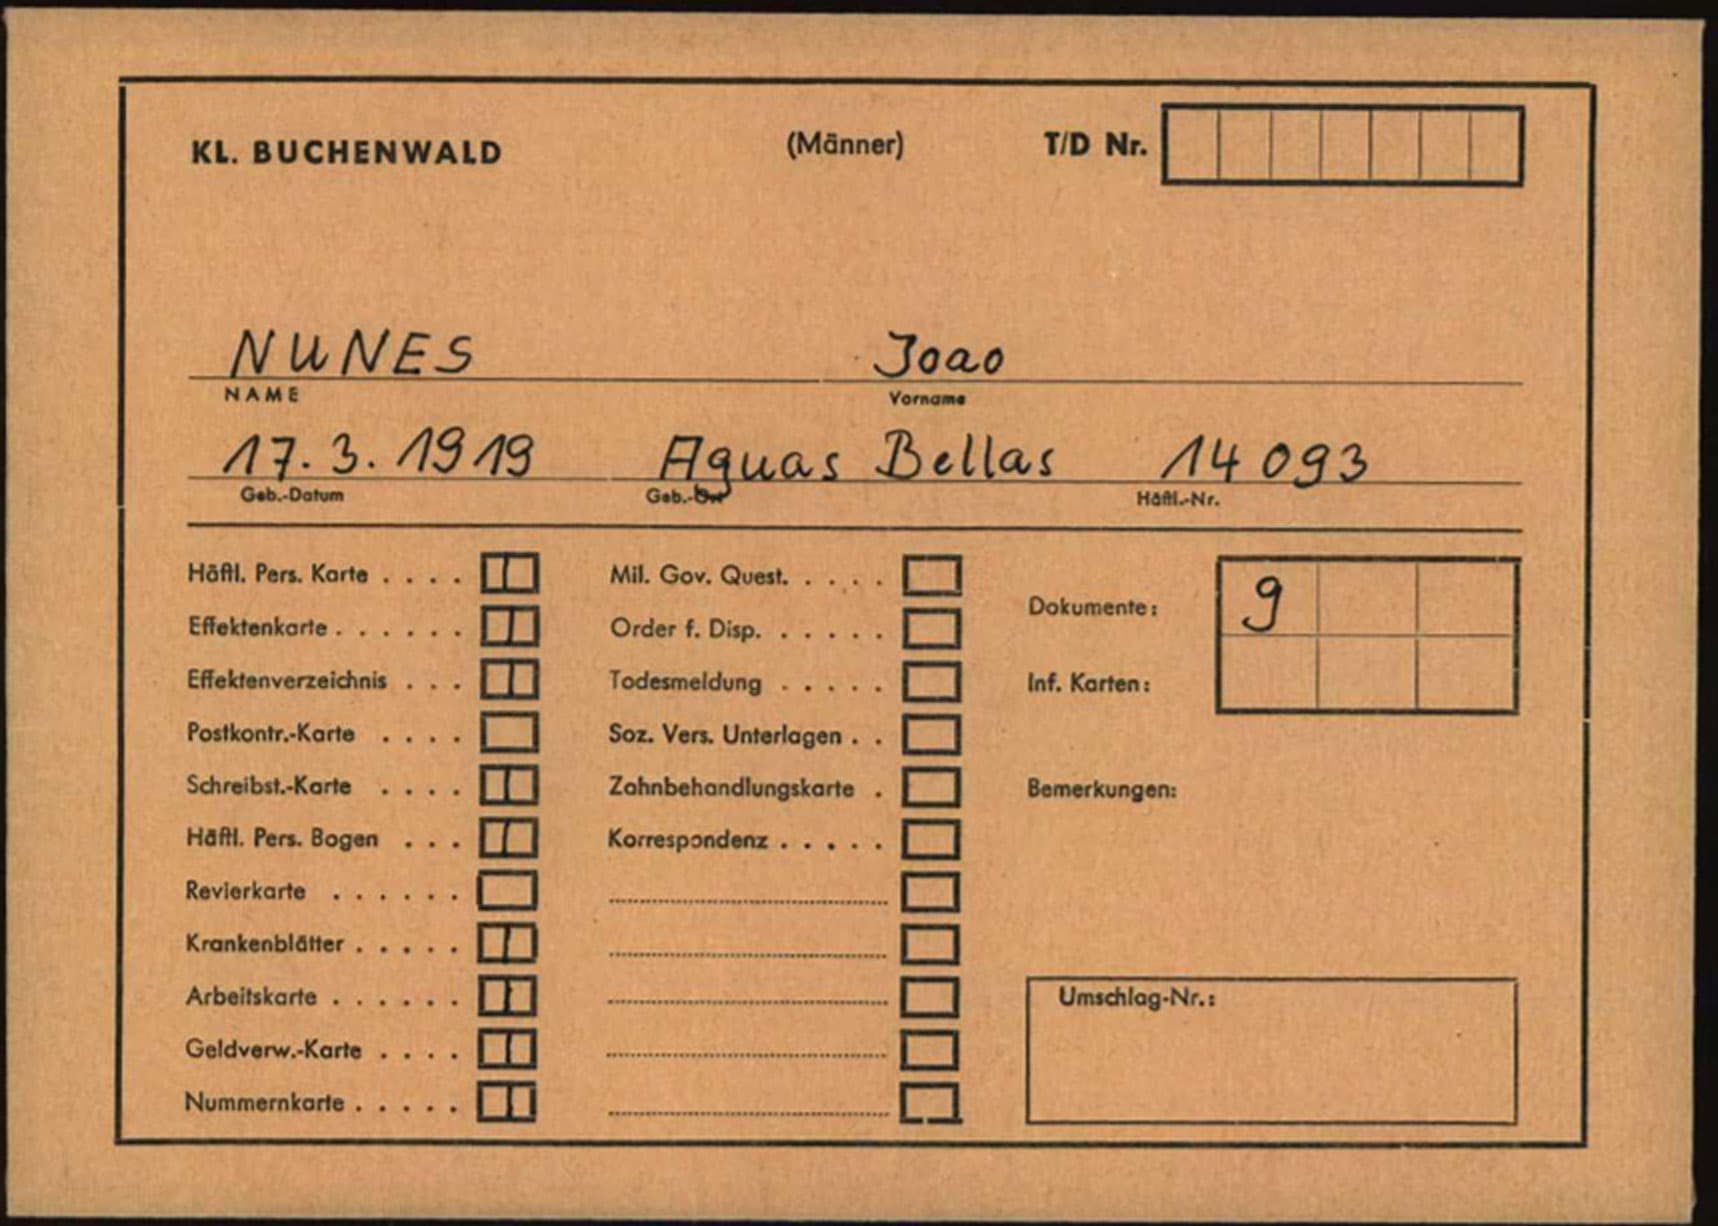 KL. BUCHENWALD (Männer) T/D Nr.
NUNES Joao
NAME Vorname
17. 3. 1919 Aguas Bellas 14 093
Geb.-Datum Geb.-Ort Häftl.-Nr.
Häftl. Pers. Karte . . . .
Effektenkarte . . . . . .
Effektenverzeichnis . . .
Postkontr.-Karte . . . .
Schreibst.-Karte . . . .
Häftl. Pers. Bogen . . .
Revierkarte . . . . . .
Krankenblätter . . . . .
Arbeitskarte . . . . . .
Geldverw.-Karte . . . .
Nummernkarte . . . . .
Mil. Gov. Quest. . . . . .
Order f. Disp. . . . . . .
Todesmeldung . . . . .
Soz. Vers. Unterlagen . .
Zahnbehandlungskarte .
Korrespondenz . . . . .
Dokumente: 9
Inf. Karten:
Bemerkungen:
Umschlag-Nr.: